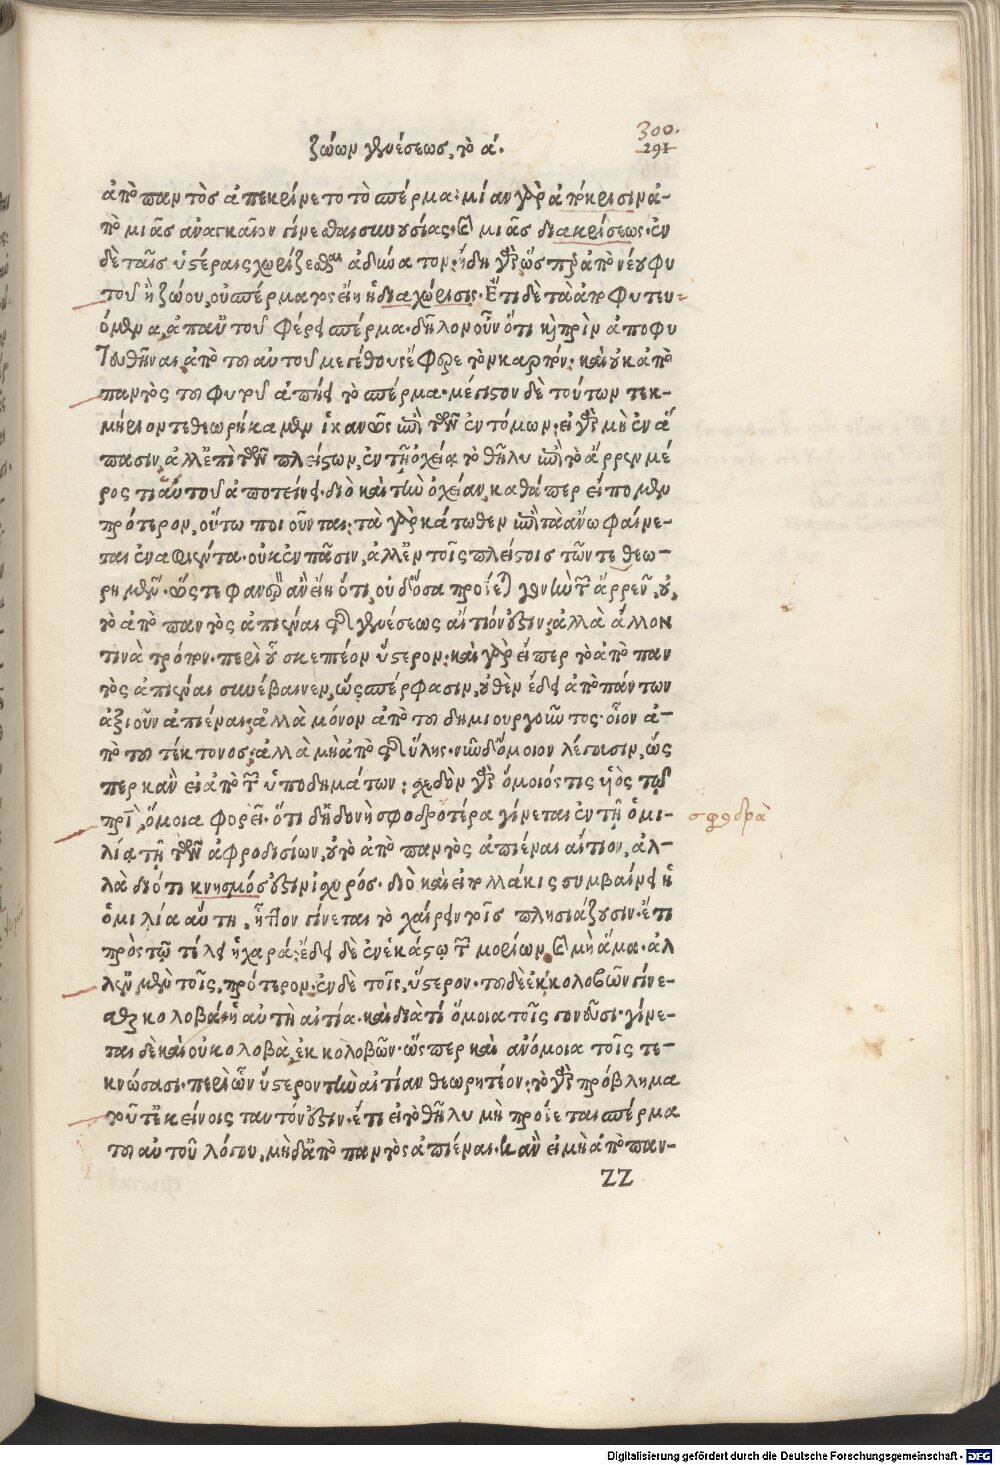 ζώων γενέσεως, τὸ α΄.
300.
291
ἀπὸ παντὸς ἀπεκρίνετο τὸ σπέρμα· μίαν γὰρ ἀπόκρισιν ἀ-
πὸ μιᾶς ἀναγκαῖον γίνεσθαι συνουσίας· καὶ μιᾶς διακρίσεως· ἐν
δὲ ταῖς ὑστέραις χωρίζεσθαι ἀδύνατον· ἤδη γὰρ ὥσπερ ἀπὸ νέου φυ
τοῦ ἢ ζώου, οὐ σπέρματος εἴη ἡ διαχώρισις. Ἔτι δὲ τὰ ἀποφυτευ-
όμενα, ἀπ' αὐτοῦ φέρει σπέρμα. δῆλον οὖν ὅτι καὶ πρὶν ἀποφυ
τευθῆναι ἀπὸ τοῦ αὐτοῦ μεγέθους ἔφερε τὸν καρπόν· καὶ οὐκ ἀπὸ
παντὸς τοῦ φυτοῦ ἀπῄει τὸ σπέρμα. μέγιστον δὲ τούτων τεκ-
μήριον τεθεωρήκαμεν ἱκανῶς ἐπὶ τῶν ἐντόμων· εἰ γὰρ μὴ ἐν ἅ
πασιν, ἀλλ' ἐπὶ τῶν πλείστων, ἐν τῇ ὀχείᾳ τὸ θῆλυ εἰς τὸ ἄρρεν μέ
ρος τι αὑτοῦ ἀποτείνει. διὸ καὶ τὴν ὀχείαν, καθάπερ εἴπομεν
πρότερον, οὕτω ποιοῦνται· τὰ γὰρ κάτωθεν εἰς τὰ ἄνω φαίνε-
ται ἐναφιέντα. οὐκ ἐν πᾶσιν, ἀλλ' ἐν τοῖς πλείστοις τῶν τεθεω-
ρημένων. ὥστε φανερὸν ἂν εἴη ὅτι, οὐδ' ὅσα προΐεται γονὴν τῶν ἀρρένων, οὐ,
τὸ ἀπὸ παντὸς ἀπιέναι τῆς γενέσεως αἴτιόν ἐστιν· ἀλλὰ ἄλλον
τινὰ τρόπον. περὶ οὗ σκεπτέον ὕστερον· καὶ γὰρ εἴπερ τὸ ἀπὸ παν
τὸς ἀπιέναι συνέβαινεν, ὥσπερ φασιν, οὐθὲν ἔδει ἀπὸ πάντων
ἀξιοῦν ἀπιέναι· ἀλλὰ μόνον ἀπὸ τοῦ δημιουργοῦντος· οἷον ἀ-
πὸ τοῦ τέκτονος· ἀλλὰ μὴ ἀπὸ τῆς ὕλης. νῦν δ' ὅμοιον λέγουσιν, ὥς
περ κἂν εἰ ἀπὸ τῶν ὑποδημάτων· σχεδὸν γὰρ ὅμοιός τις υἱὸς τῷ
πατρὶ, ὅμοια φορεῖ. ὅτι δ' ἡδονὴ σφοδροτέρα γίνεται ἐν τῇ ὁμι-
σφοδρὰ
λίᾳ τῇ τῶν ἀφροδισίων, οὐ τὸ ἀπὸ παντὸς ἀπιέναι αἴτιον, ἀλ-
λὰ διότι κνησμός ἐστιν ἰσχυρός. διὸ καὶ εἰ πολλάκις συμβαίνει ἡ
ὁμιλία αὕτη, ἧττον γίνεται τὸ χαίρειν τοῖς πλησιάζουσιν. ἔτι
πρὸς τῷ τέλει ἡ χαρά· ἔδει δὲ ἐν ἑκάστῳ τῶν μορίων, καὶ μὴ ἅμα. ἀλ
λ' ἐν μὲν τοῖς, πρότερον· ἐν δὲ τοῖς, ὕστερον. τοῦ δὲ ἐκ κολοβῶν γίνε-
σθαι κολοβά· ἡ αὐτὴ αἰτία. καὶ διὰ τί ὅμοια τοῖς γονεῦσι. γίνε-
ται δὲ καὶ οὐ κολοβὰ, ἐκ κολοβῶν. ὥσπερ καὶ ἀνόμοια τοῖς τε-
κνώσασι. περὶ ὧν ὕστερον τὴν αἰτίαν θεωρητέον· τὸ γὰρ πρόβλημα
τοῦτ' ἐκείνοις ταυτόν ἐστιν. ἔτι εἰ τὸ θῆλυ μὴ προΐεται σπέρμα
τοῦ αὐτοῦ λόγου, μηδ' ἀπὸ παντὸς ἀπιέναι. κἂν εἰ μὴ ἀπὸ παν-
ZZ
Digitalisierung gefördert durch die Deutsche Forschungsgemeinschaft - DFG